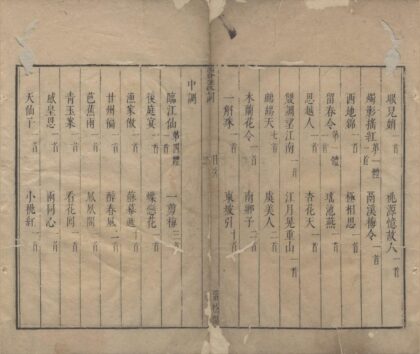 眼兒媚一首 桃源憶故人一首
燭影搖紅第一體一首 鬲溪梅令一首
西地錦一首 極相思一首
留春令 體一首 瑤池燕一首
思越人一首 杏花天一首
雙調望江南一首 江月晃重山一首
鷓鴣天七首 虞美人二首
木蘭花令一首 南鄉子二首
一斛珠一首 東坡引一首
詞
目次
中調
臨江仙第四體一首 一剪梅三首
後庭宴一首 蝶戀花二首
漁家傲一首 蘇幕遮一首
甘州徧一首 醉春風一首
芭蕉雨一首 一首
青玉案一首 看花回一首
感皇恩一首 兩同心一首
天仙子一首 小桃紅一首